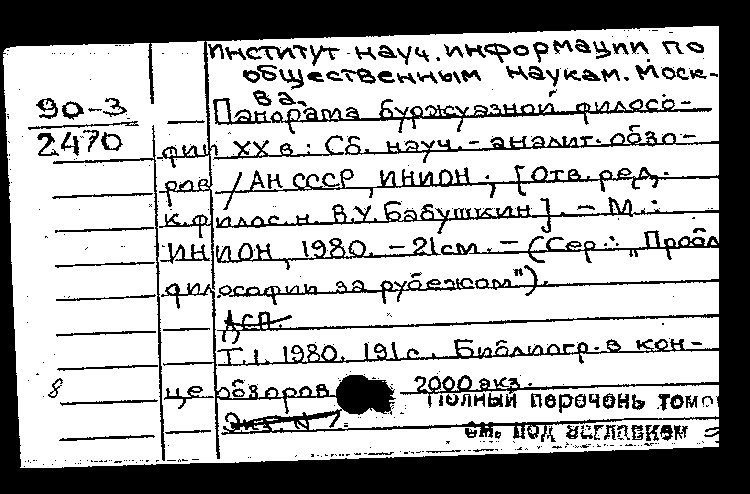 Институт науч. информации по
общественным наукам. Моск-
ва.
90-3
2470
Панорама буржуазной филосо-
фии XX в: Сб. науч.-аналит. обзо-
ров / АН СССР, ИНИОН; [Отв. ред.
к.филос.н. В.У. Бабушкин]. - М.:
ИНИОН, 1980. - 21см. - (Сер.: "Пробл
философии за рубежом").
ДСП.
Т.1. 1980. 191 с. Библиогр. в кон-
8
це обзоров 2000 экз.
Полный перечень томо
Экз. N 1.
см. под заглавием